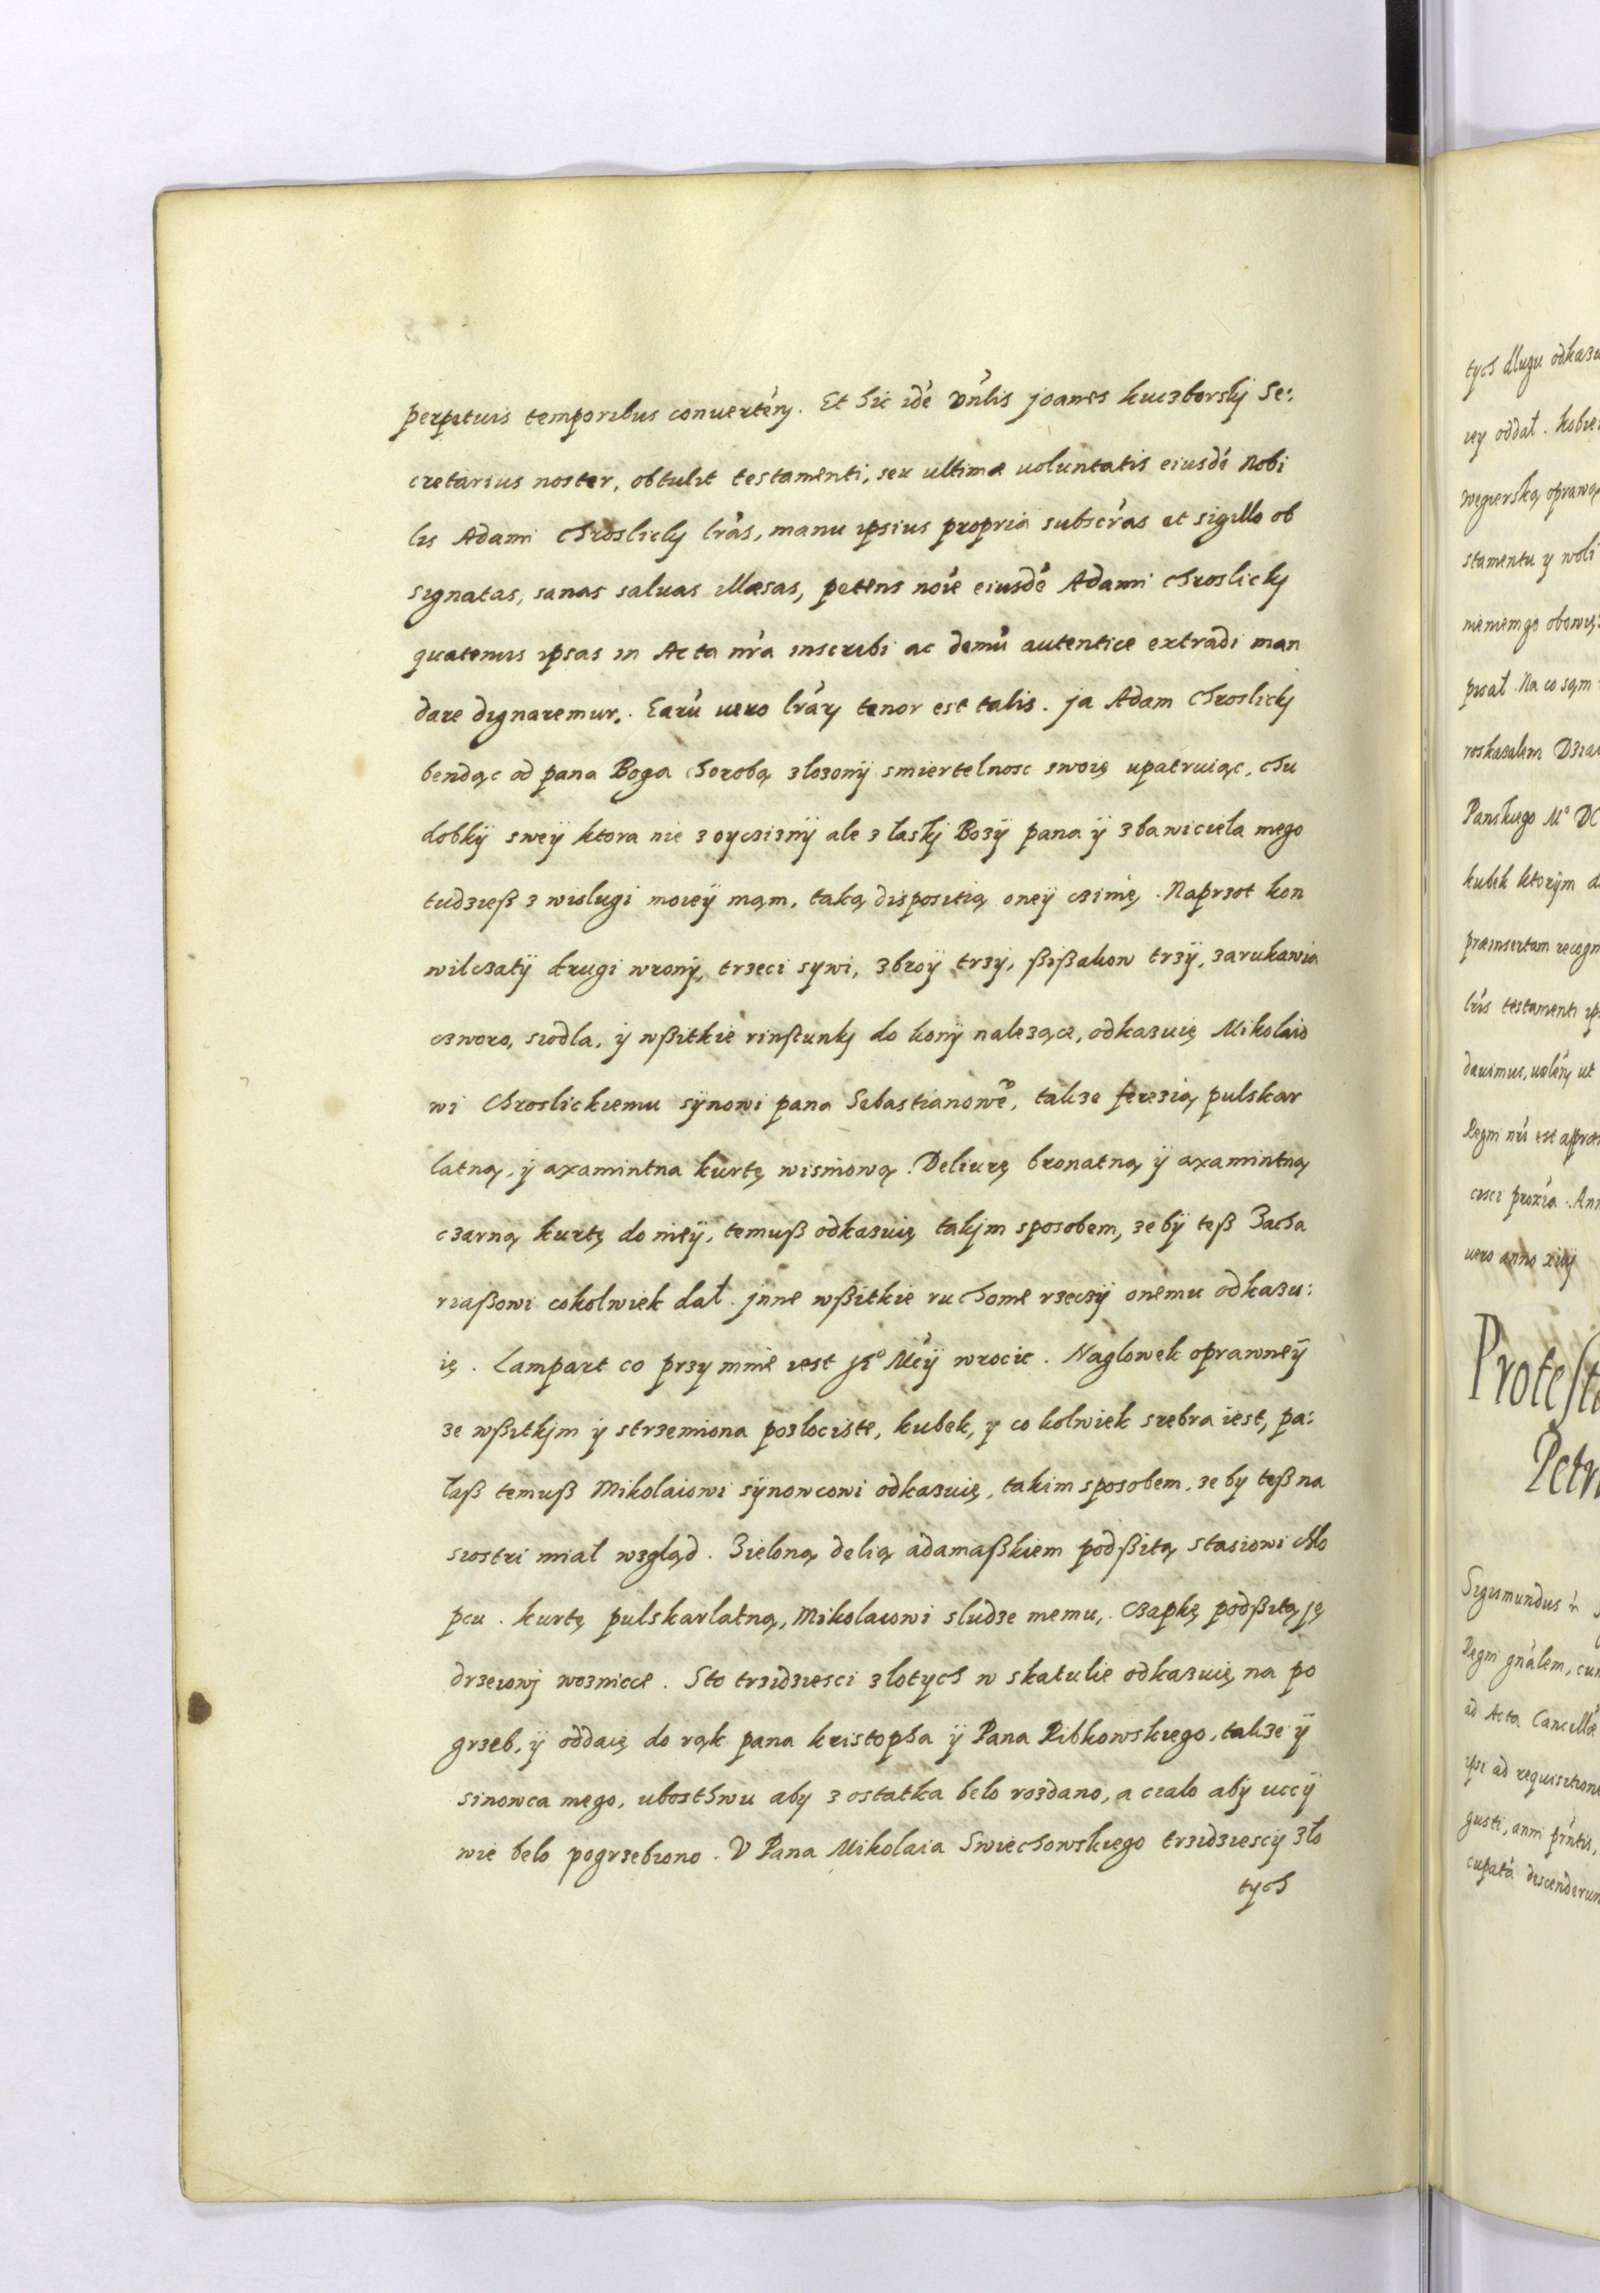 perpetuis temporibus conuerteñ. Et hic idē Vn̄lis Joanes Kuczborskÿ Se:
cretarius noster, obtulit testamenti, seu ultimæ uoluntatis eiusdē Nobi
lis Adami Chroslickÿ lr̃as, manu ipsius propria subscr̃as et sigillo ob
signatas, sanas saluas illæsas, petens noīe eiusdē Adami Chroslickÿ
quatenus ipsas in Acta nr̃a inscribi ac demū autentice extradi man
dare dignaremur. Earū uero lr̃arꝝ tenor est talis. Ja Adam Chroslickÿ
bendąc od pana Boga Chorobą zlozonÿ smiertelnosc swoię upatruiąc, chu
dobkÿ sweÿ ktora nie z oyczisnÿ ale z łaskÿ Bozÿ pana ÿ zbawiciela mego
tudzieß z wislugi moieÿ mąm, taką dispositią oneÿ czinię. Naprzot kon
wilczatÿ drugi wronÿ, trzeci sywi, zbroÿ trzÿ, ßißakow trzÿ, zarukawia
czworo, siodla, ÿ wßitkie rinstunkÿ do konÿ nalezące, odkazuię Mikolaio
wi Chroslickiemu sÿnowi pana Sebastianowē, takze ferezią pulskar
latną, ÿ axamintna kurtę wisniową. Deliurę bronatną ÿ axamintną
czarną kurtę do nieÿ, temuß odkazuię takjm sposobem, ze bÿ teß Zacha
riaßowi cokolwiek dał. Jnne wßitkie ruchome rzeczÿ onemu odkazu:
ię. Lampart co przy mnie iest J K° Mc̃ÿ wrocic. Naglowek oprawneÿ
ze wßitkjm ÿ strzemiona pozlociste, kubek, y co kolwiek srebra iest, pa:
łaß temuß Mikolaiowi sÿnowcowi odkazuię, takim sposobem, ze by teß na
siostri miał wzgląd. Zieloną delią adamaßkiem podßitą stasiowi chło
pcu. kurtę pulskarlatną, Mikolaiowi sludze memu, Czapkę podßitą Ję
drzeiowj woznicce. Sto trzidziesci zlotych w skatulie odkazuię na po
grzeb, ÿ oddaię do rąk pana kristopha ÿ Pana Ribkowskiego, takze ÿ
sinowca mego, ubosthwu aby z ostatka belo rozdano, a cialo abÿ uccÿ
wie belo pogrzebiono. V Pana Mikolaia Swiechowskiego trzidziescÿ zło
tych
tych dlugu odkazu
iey oddał. kobie
wegierską oprawą
stamentu y woli
pisał. Na co sąm
roskazalem Dzia
Panskiego M° DC
kubek ktorÿm
præinsertam recogn
lr̃as testamenti ip
dauimus, uoleñ ut
Regni nr̃i est
uero anno xiiij
Protesta
Petri
Sigismundus
Regni gnãlem, cum
ad Acta Cancellã
ipse ad requisitione
gusti, anni prñtis,
descenderun